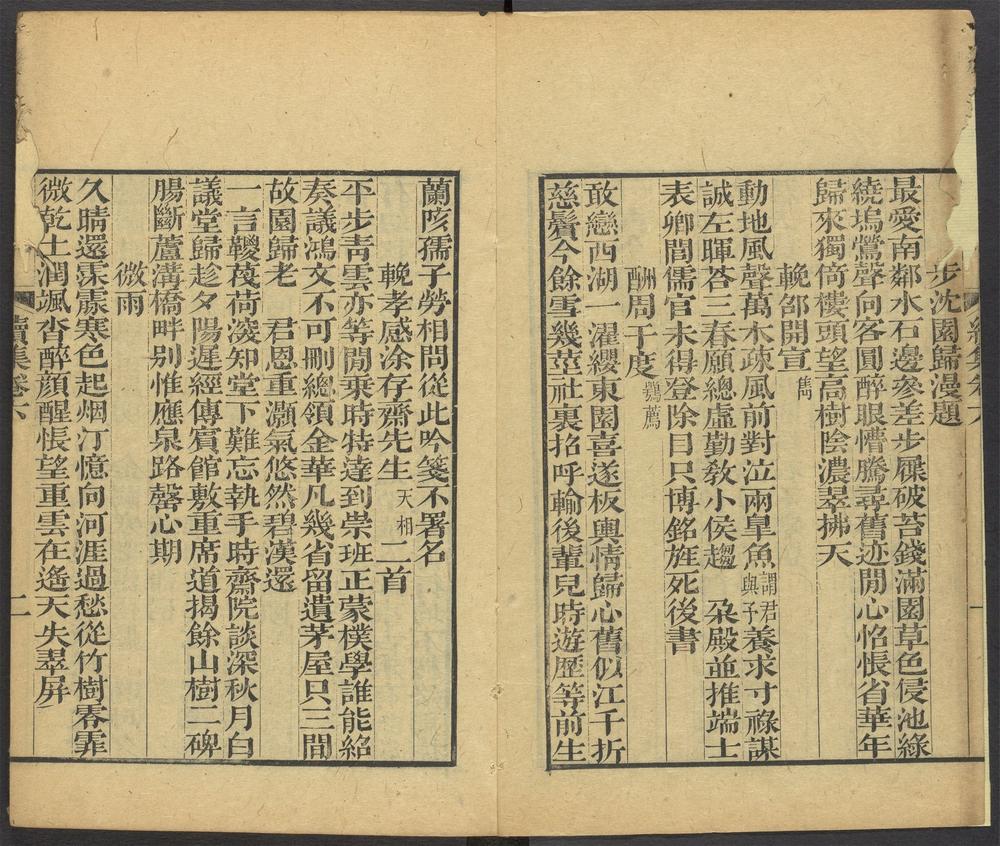 步沈園歸漫題
最愛南鄰水石邊參差步屧破苔錢滿園草色侵池綠
繞塢鶯聲向客圓醉眼懵騰尋舊迹閒心怊悵省華年
歸來獨倚樓頭望高樹陰濃翠拂天
輓邰開宣雋
動地風聲萬木疎風前對泣兩皐魚謂君與予養求寸祿謀
誠左暉荅三春願總虛勤敎小侯趨 朶殿並推端士
表卿間儒官未得登除目只博銘旌死後書
酬周于度鶚薦
敢戀西湖一濯纓東園喜遂板輿情歸心舊似江千折
慈鬢今餘雪幾莖社裏招呼輸後輩兒時遊歷等前生
蘭咳孺子勞相問從此吟箋不署名
輓孝感涂存齋先生天相二首
平步靑雲亦等閒乗時特達到崇班正蒙樸學誰能紹
奏議鴻文不可刪總領金華凡幾省留遺茅屋只三間
故園歸老 君恩重灝氣悠然碧漢還
一言鞭茷荷淩知堂下難忘執手時齋院談深秋月白
議堂歸趁夕陽遲經傳賓館敷重席道揭餘山樹二碑
腸斷蘆溝橋畔別惟應泉路罄心期
微雨
久晴還霂霡寒色起烟汀憶向河涯過愁從竹樹零霏
微乾土潤颯沓醉顔醒悵望重雲在遙天失翠屏
續集卷六
二